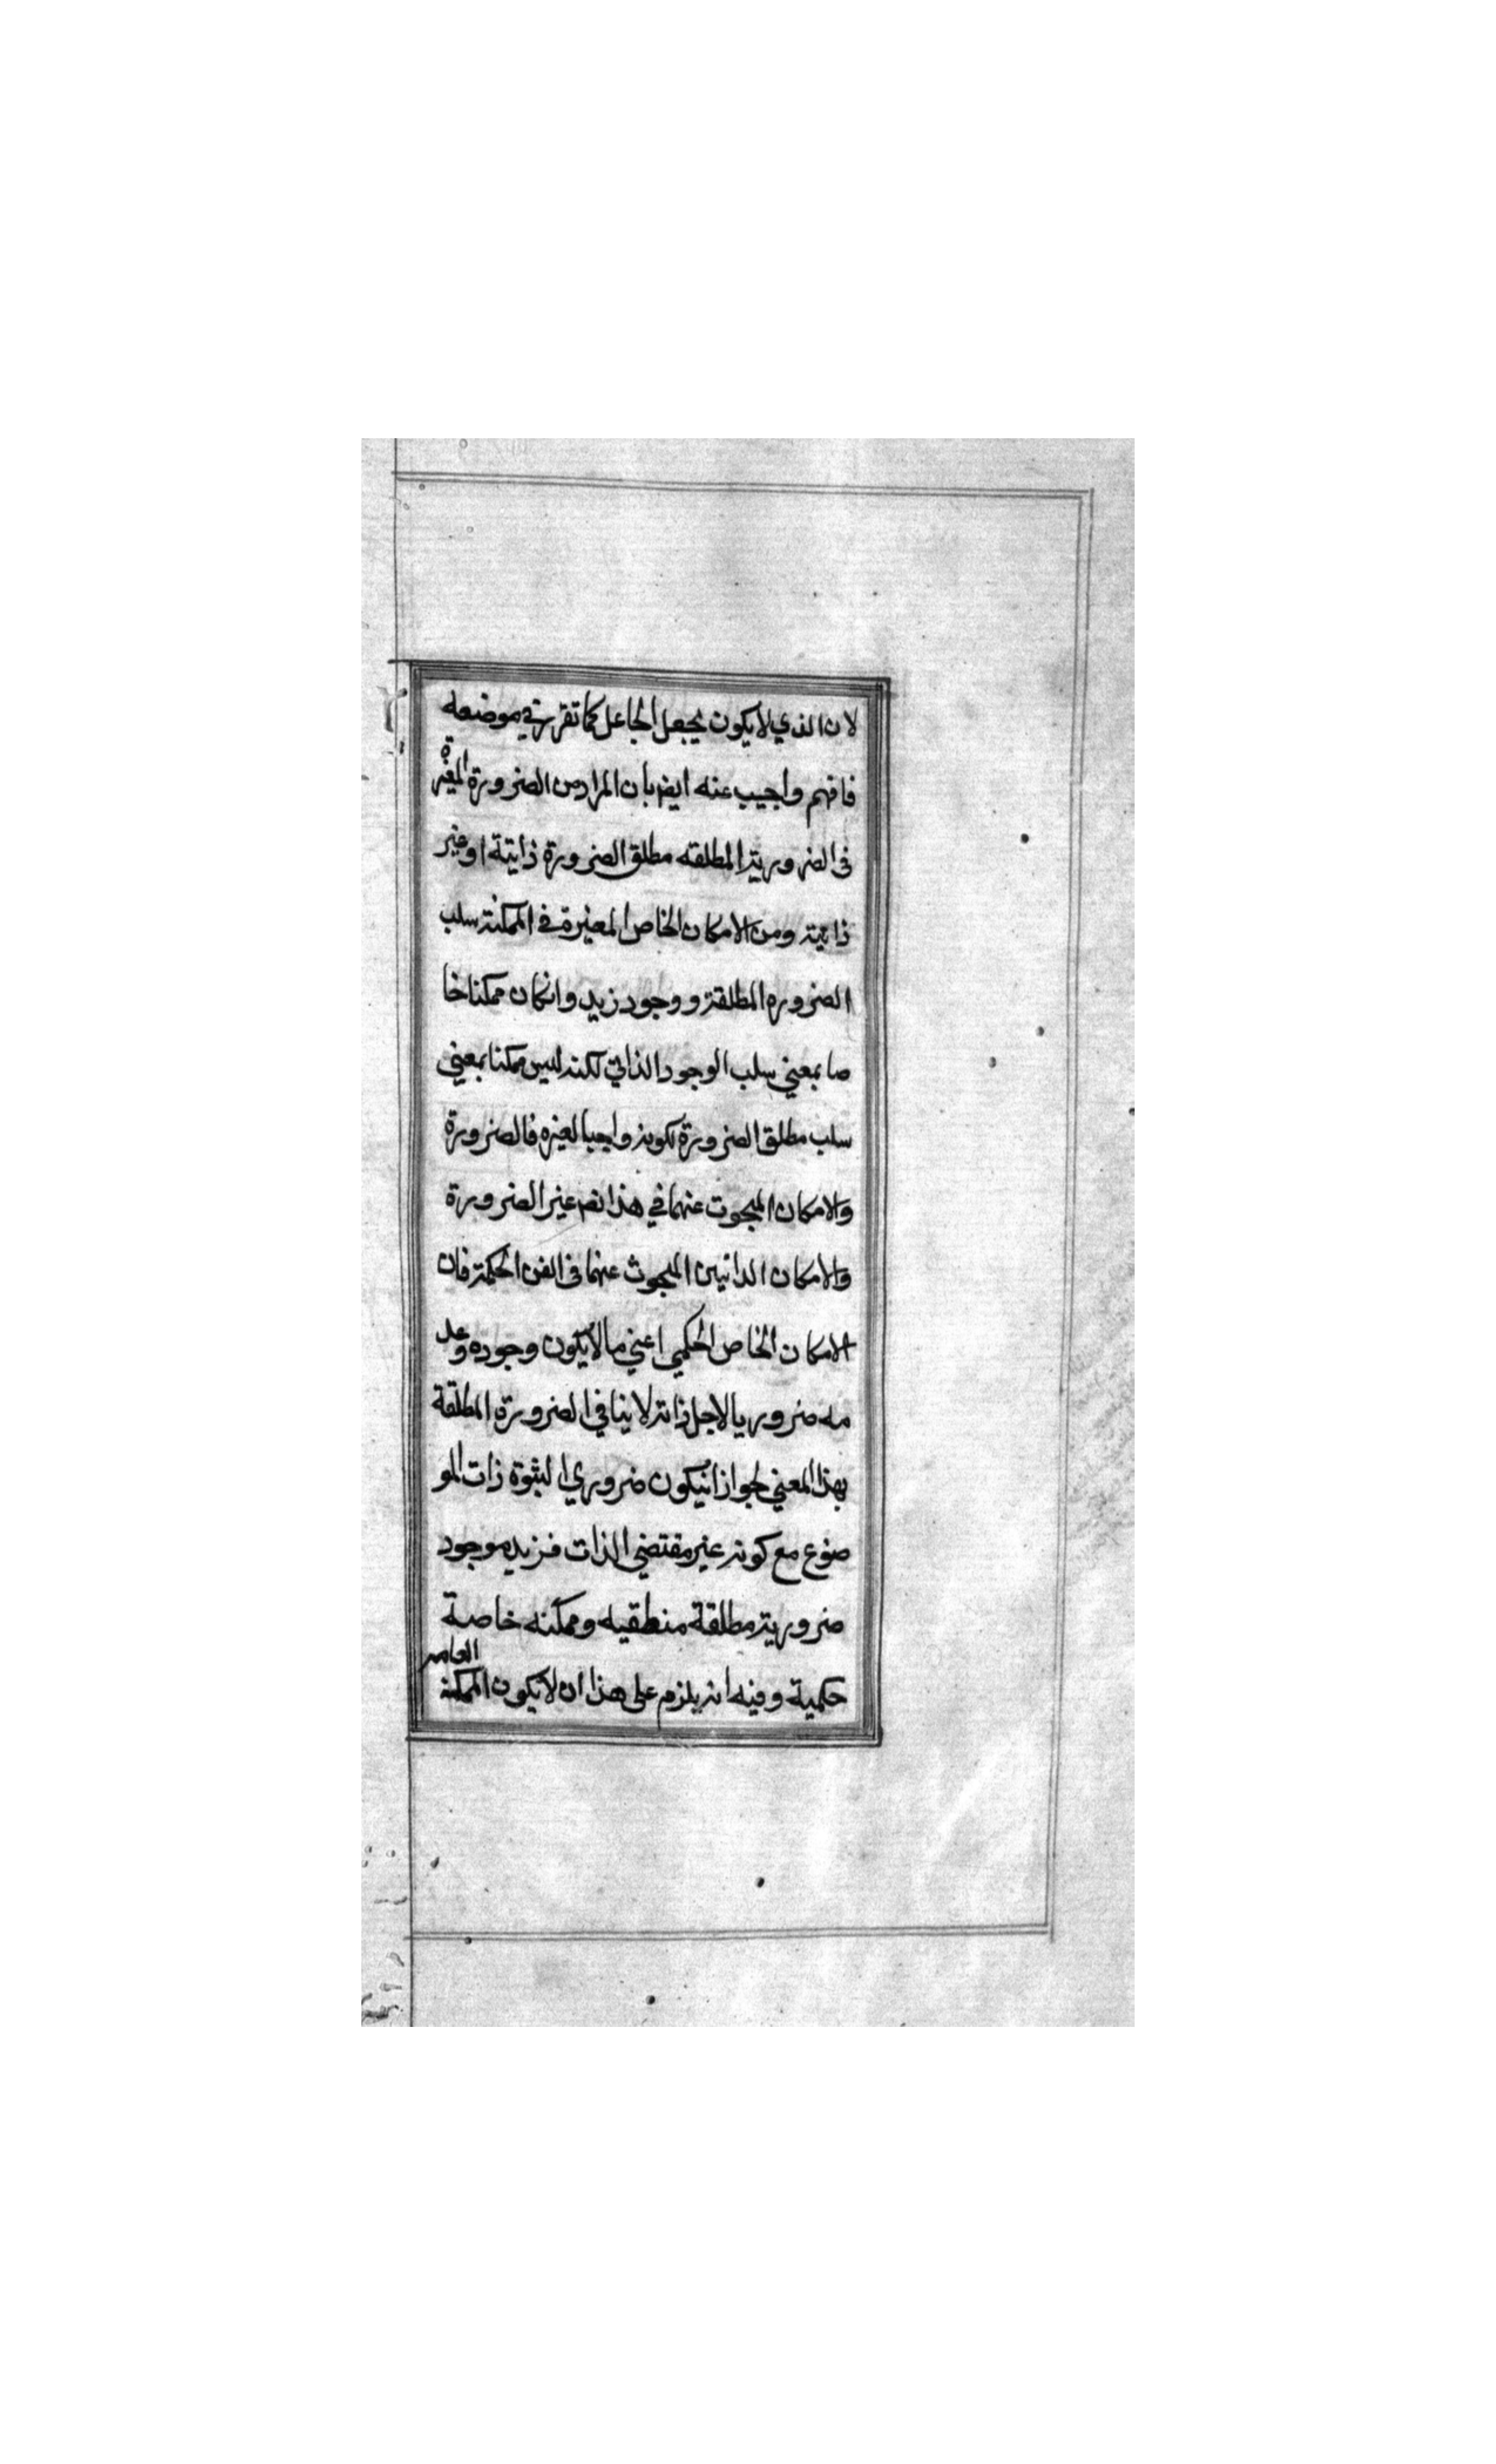 لان الذي لا يكون بجعل الجاعل كما تقرر في موضعه
فافهم واجيب عنه ايضا بان المراد من الضرورة المعتبرة
في الضرورية المطلقه مطلق الضرورة ذاتية او غير
ذاتية ومن الامكان الخاص المعتبرة في الممكنة سلب
الضروره المطلقة ووجود زيد وانكان ممكنا خا
صا بمعني سلب الوجود الذاتي لكنه ليس ممكنا بمعني
سلب مطلق الضرورة لكونه واجبا لغيره فالضرورة
والامكان المبحوت عنهما في هذا غير الضرورة
والامكان الداتيين المبحوث عنهما في الفن الحكمة فان
الامكان الخاص الحكمي اعني ما لا يكون وجوده وعد
مه ضروريا لاجل ذاته لا ينافي الضرورة المطلقة
بهذا المعني لجواز انيكون ضروري الثبوة ذات المو
ضوع مع كونه غير مقتضي الذات فزيد موجود
ضرورية مطلقة منطقيه وممكنه خاصة
حكمية وفيه انه يلزم على هذا ان لا يكون الممكنة العامه